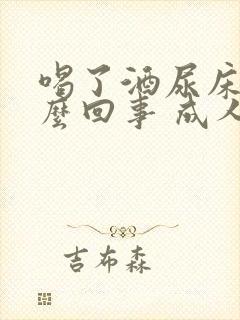 喝了酒尿床
麼回事 成人
吉布森